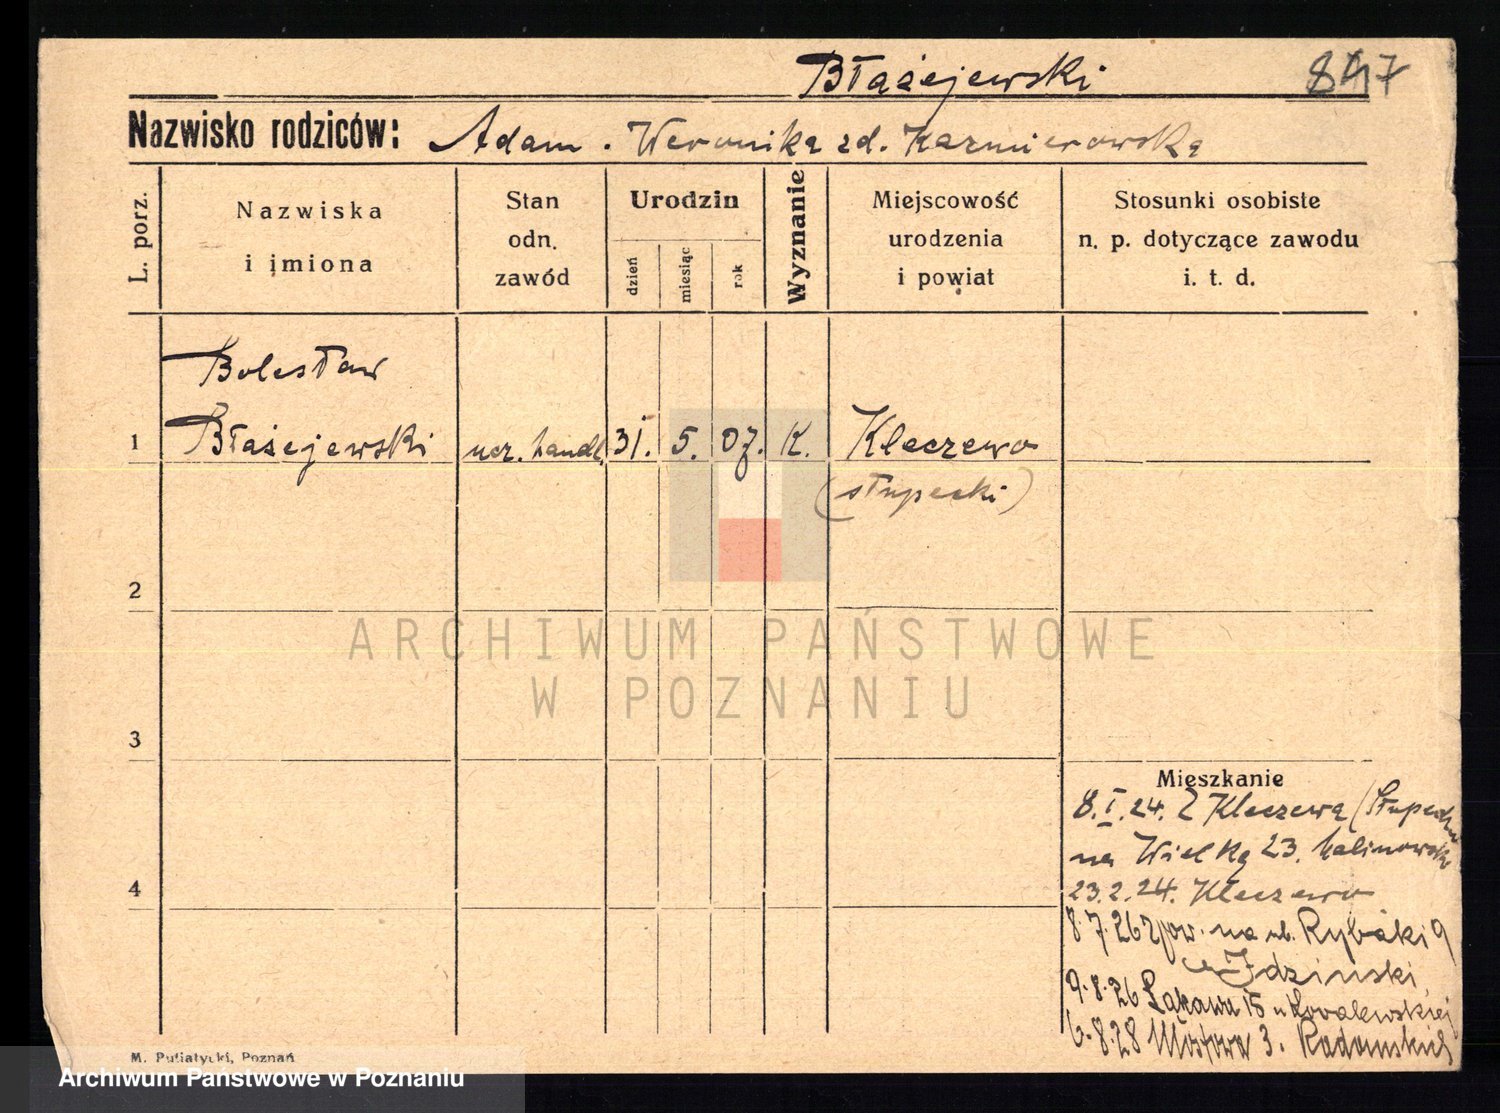 Błażejewski 847
Nazwisko rodziców: Adam . Weronika zd. Kazmierowska
L. porz.
Nazwiska
i imiona
Stan
odn.
zawód
Urodzin
dzień
miesiąc
rok
Wyznanie
Miejscowość
urodzenia
i powiat
Stosunki osobiste
n. p. dotyczące zawodu
i. t. d.
Bolesław
1 Błażejewski ucz. handl. 31. 5. 07. K. Kleczewo
(słupecki)
2
ARCHIWUM PAŃSTWOWE
W POZNANIU
3
Mieszkanie
8.I.24. Z Kleczewa (Słupecki
na Wielką 23. Kalinowski
4
23.2.24. Kleczewo
8.7.26 na ul. Rybaki 9
Idzinski
9.8.26 Łąkowa 15 u Kowalewskiej
6.8.28 Mostowa 3. Radomskich
M. Putiatycki, Poznań
Archiwum Państwowe w Poznaniu